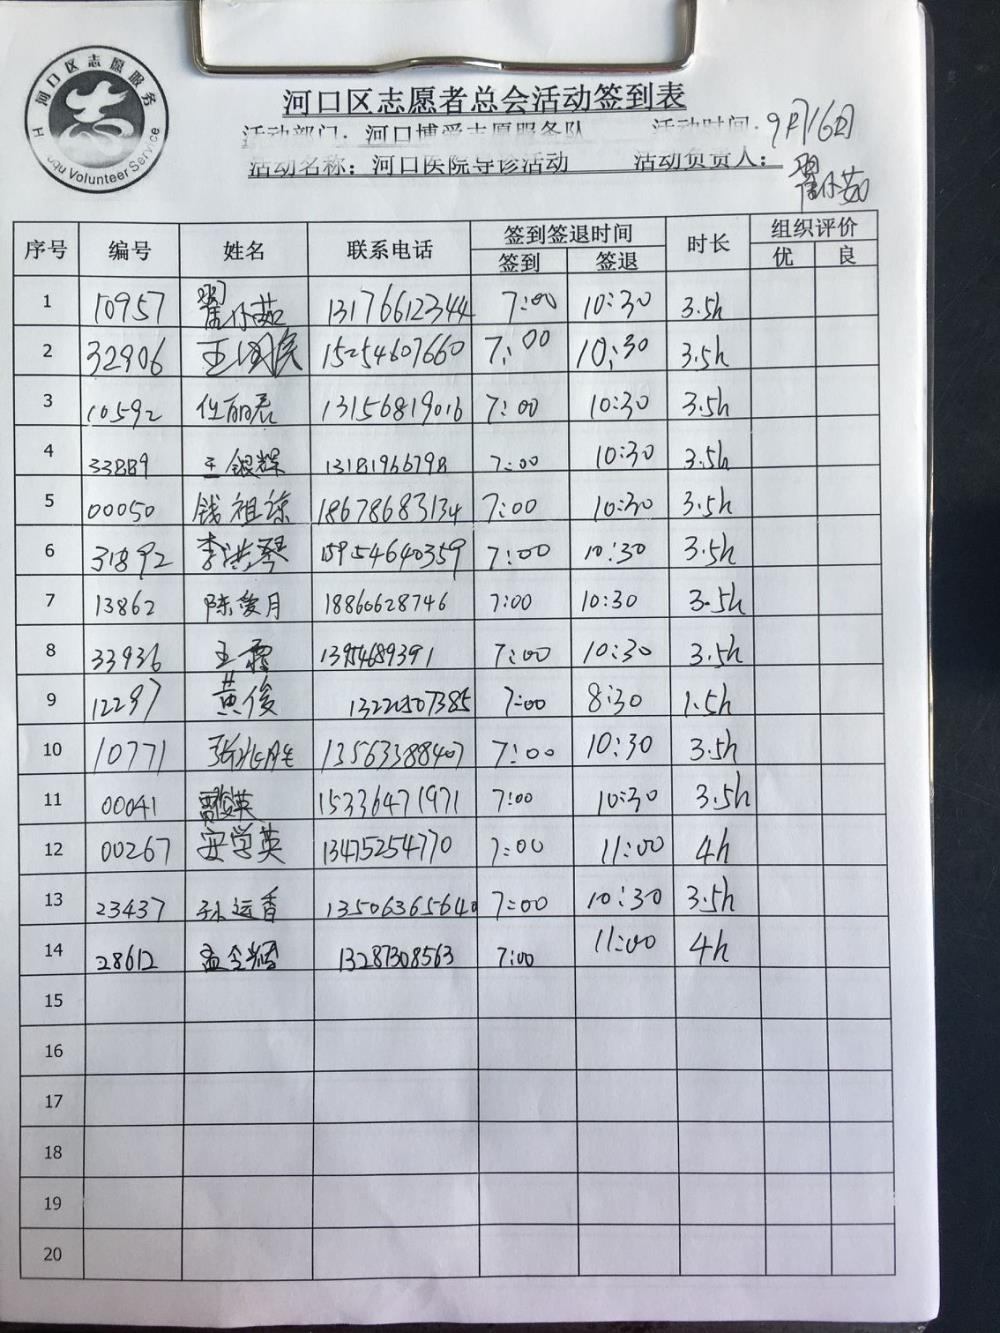 河口区志愿服务
Volunteer Service
河口区志愿者总会活动签到表
活动部门：河口博爱志愿服务队 活动时间：9月16日
活动名称：河口医院导诊活动 活动负责人：
序号 编号 姓名 联系电话 签到签退时间 时长 组织评价
签到 签退 优 良
1 10957 13176612344 7:00 10:30 3.5h
2 32906 王国民 15254607660 7:00 10:30 3.5h
3 10592 任丽君 13156819016 7:00 10:30 3.5h
4 33889 王银辉 13181966798 7:00 10:30 3.5h
5 00050 钱祖琼 18678683134 7:00 10:30 3.5h
6 31892 李洪琴 15954640359 7:00 10:30 3.5h
7 13862 陈爱月 18860628746 7:00 10:30 3.5h
8 33936 王霞 7:00 10:30 3.5h
9 12297 黄俊 13220507385 7:00 8:30 1.5h
10 10771 13563388407 7:00 10:30 3.5h
11 00041 15336471971 7:00 10:30 3.5h
12 00267 安学英 13475254770 7:00 11:00 4h
13 23437 孙运香 13506365640 7:00 10:30 3.5h
14 28612 13287308563 7:00 11:00 4h
15
16
17
18
19
20